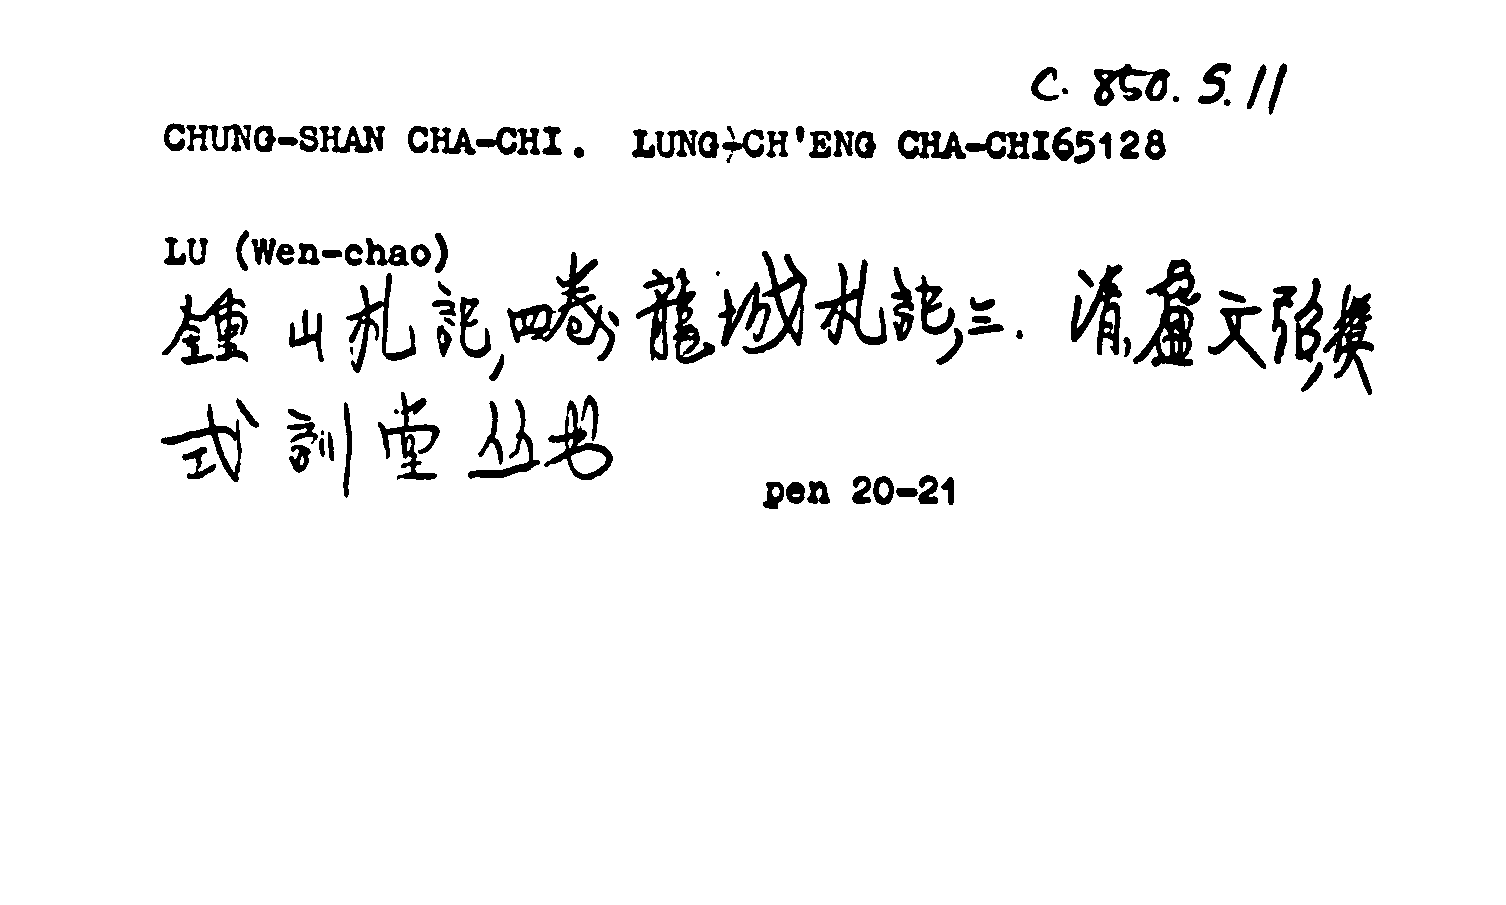 C. 850. S. 11
CHUNG-SHAN CHA-CHI. LUNG-CH'ENG CHA-CHI65128
LU (Wen-chao)
鍾山札記,四卷;龍城札記,三. 清,盧文弨,撰
式訓堂丛书
pen 20-21